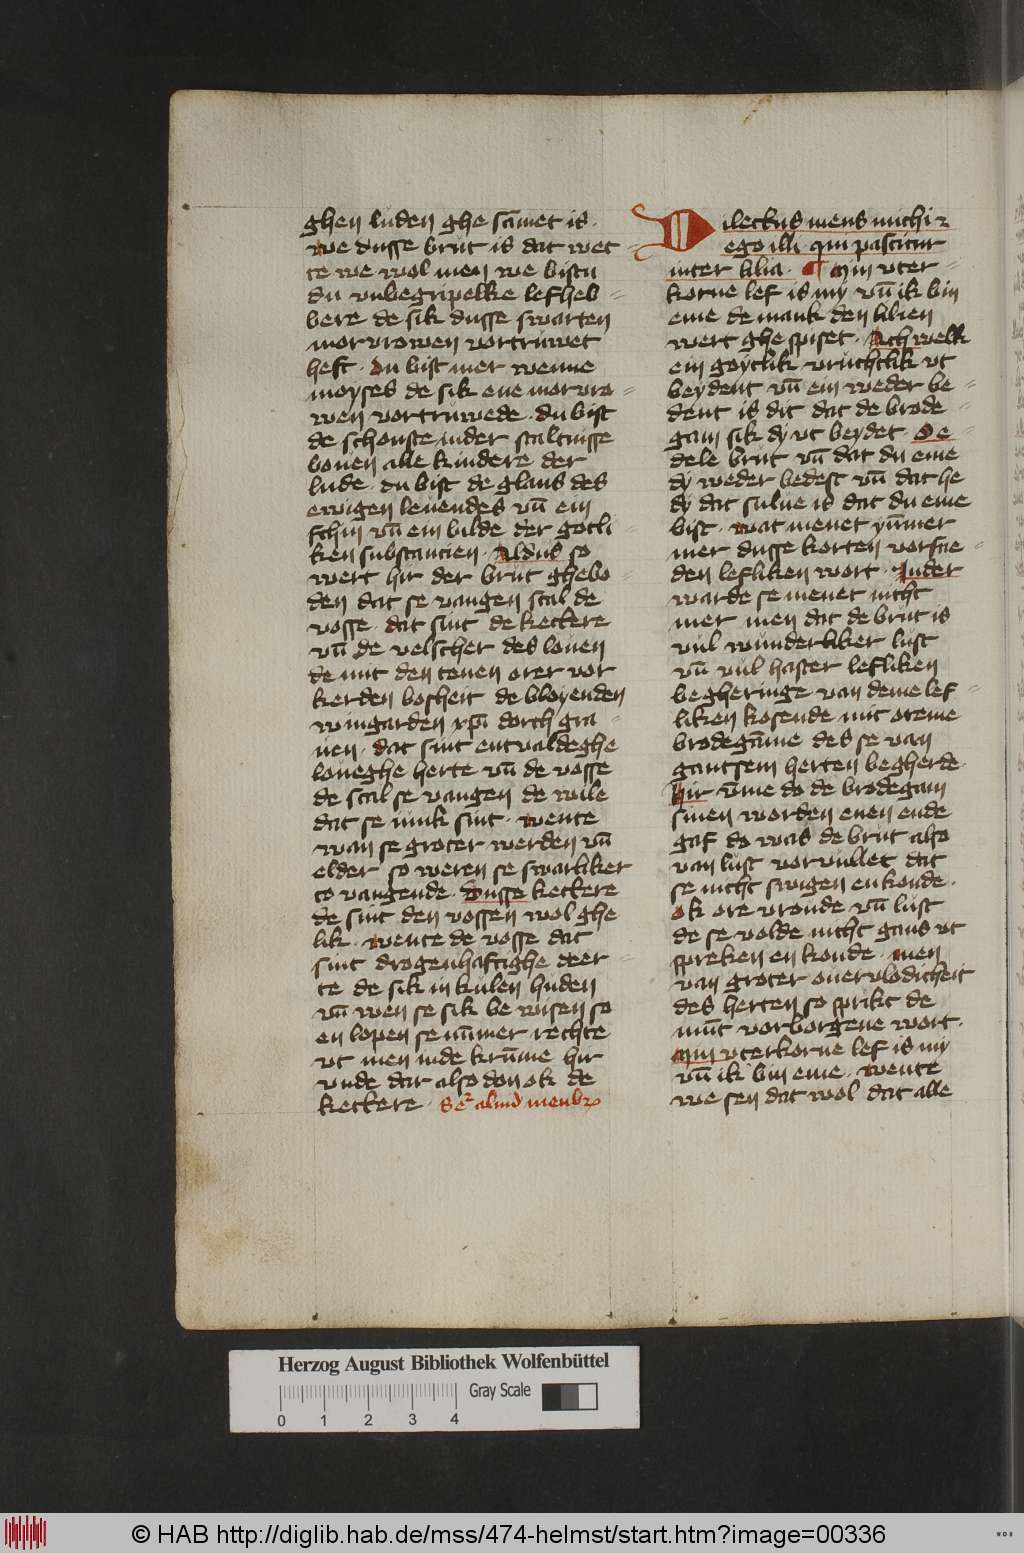 ghen luden ghe sāmet is·
we dusse brut is dat wet
te we wol men we bistu
du vnbegripelke lefheb-
bere de sik dusse swarten
morvrowen vortruwet
heft· du bist mer wenne
moyses de sik ene morvro-
wen vortruwede· du bist
de schonste inder staltnisse
bouen alle kindere der
lude· du bist de glans des
ewigen leuendes vn̄ ein
schin vn̄ ein bilde der gotli
ken substancien· Aldus so
wert hir der brut ghebo-
den dat se vangen scal de
vosse· dat sint de kettere
vn̄ de velscher des louen
de mit den tenen orer vor
kerden bosheit de bloyenden
wingarden xp̄i dorch gra-
uen· dat sint entvaldeghe
loueghe herte vn̄ de vosse
de scal se vangen de wile
dat se iunk sint· wente
wan se groter werden vn̄
elder so weren se swarliker
to vangende· Dusse kettere
de sint den vossen wol ghe
lik· wente de vosse dat
sint drogenhaftighe deer-
te de sik in kulen huden
vn̄ wen se sik be wisen so
en lopen se nūmer rechte
vt men inde krūme hir
vnde dar also don ok de
kettere·
Dilectus meus michi ⁊
ego illi qui pascitur
inter lilia· ¶ Min vter-
korne lef is my vn̄ ik bin
eme de mank den lilien
wert ghe spiset· Ach welk
ein goytlik vruchtlik vt
beydent vn̄ ein weder be-
dent is dit dat de brode-
gam sik dy vt beydet· O e-
dele brut vn̄ dat du eme
dy weder bedest vn̄ dat he
dy dat sulue is dat du eme
bist· wat menet yūmer
mer dusse korten vorsne-
den lefliken wort· Inder
warde se menet nicht
mer men dat de brut is
vul wunderliker lust
vn̄ vul haster lefliken
begheringe van deme lef-
liken kosende mit oreme
brodegāme des se van
gantsem herten begherde·
Hir v̄me do de brodegam
sinen worden enen ende
gaf do was de brut also
van lust vorvullet dat
se nicht swigen en konde·
ok ore vronde vn̄ lust
de se volde nicht gans vt
spreken en konde· men
van groter ouervlodicheit
des herten so sprikt de
mūt vorborgene wort·
Min vterkorne lef is my
vn̄ ik bin eme· wente
we sen dat wol dat alle
Herzog August Bibliothek Wolfenbüttel
Gray Scale
0 1 2 3 4
© HAB http://diglib.hab.de/mss/474-helmst/start.htm?image=00336